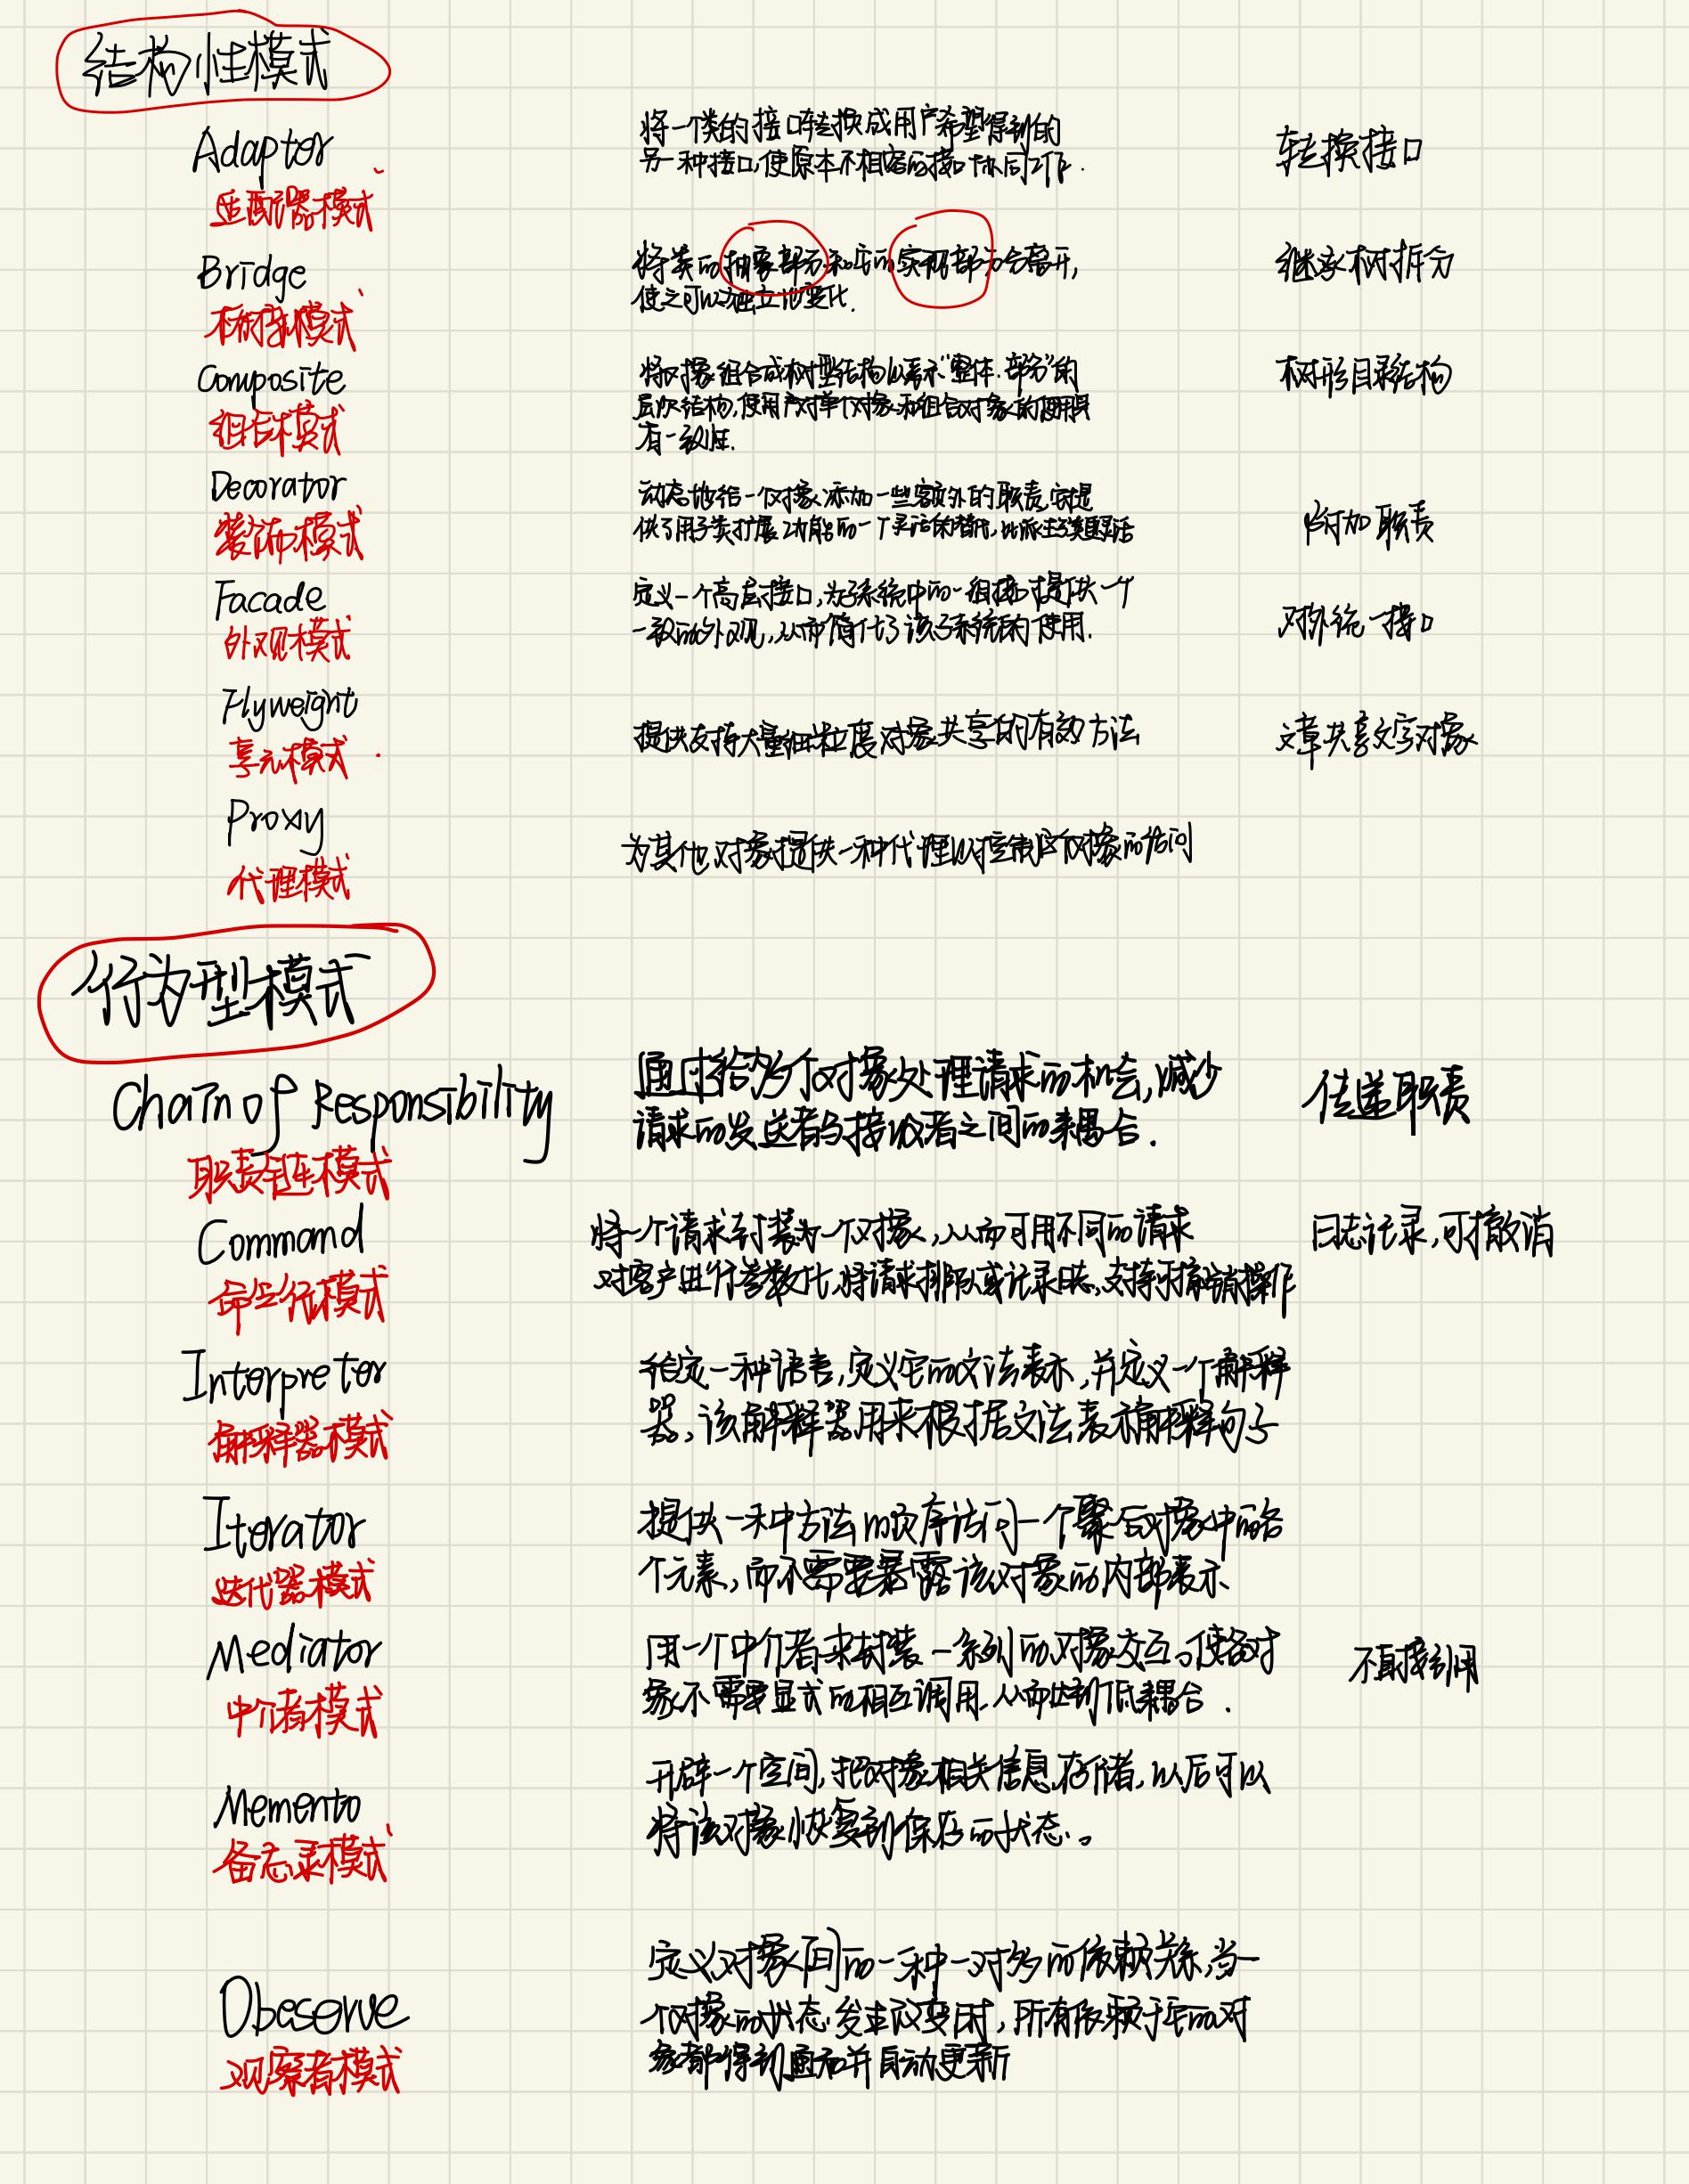 结构性模式
Adaptor
适配器模式
将一个类的接口转换成用户希望得到的
另一种接口,使原本不相容的接口协同工作.
转换接口
Bridge
桥接模式
将类的抽象部分和它的实现部分分离开,
使之可以独立地变化.
继承树拆分
Composite
组合模式
将对象组合成树型结构以表示"整体.部分"的
层次结构,使用户对单个对象和组合对象的使用具
有一致性.
树形目录结构
Decorator
装饰模式
动态地给一个对象添加一些额外的职责.它提
供了用子类扩展功能的一个灵活的替代,比派生子类更灵活
附加职责
Facade
外观模式
定义一个高层接口,为子系统中的一组接口提供一个
一致的外观,从而简化了该子系统的使用.
对外统一接口
Flyweight
享元模式
提供支持大量细粒度对象共享的有效方法
文章共享文字对象
Proxy
代理模式
为其他对象提供一种代理以控制这个对象的访问
行为型模式
Chain of Responsibility
职责链模式
通过给多个对象处理请求的机会,减少
请求的发送者与接收者之间的耦合.
传递职责
Command
命令行模式
将一个请求封装为一个对象,从而可用不同的请求
对客户进行参数化,将请求排队或记录日志,支持撤销操作
日志记录,可撤消
Interpretor
解释器模式
给定一种语言,定义它的文法表示,并定义一个解释
器,该解释器用来根据文法表示解释句子
Iterator
迭代器模式
提供一种方法顺序访问一个聚合对象中的各
个元素,而不需要暴露该对象的内部表示
Mediator
中介者模式
用一个中介者来封装一系列的对象交互。使各对
象不需要显式的相互调用,从而达到低耦合.
不直接引用
Memento
备忘录模式
开辟一个空间,把对象相关信息存储,以后可以
将该对象恢复到保存的状态。
Obeserve
观察者模式
定义对象间的一种一对多的依赖关系,当一
个对象的状态发生改变时,所有依赖于它的对
象都得到通知并自动更新